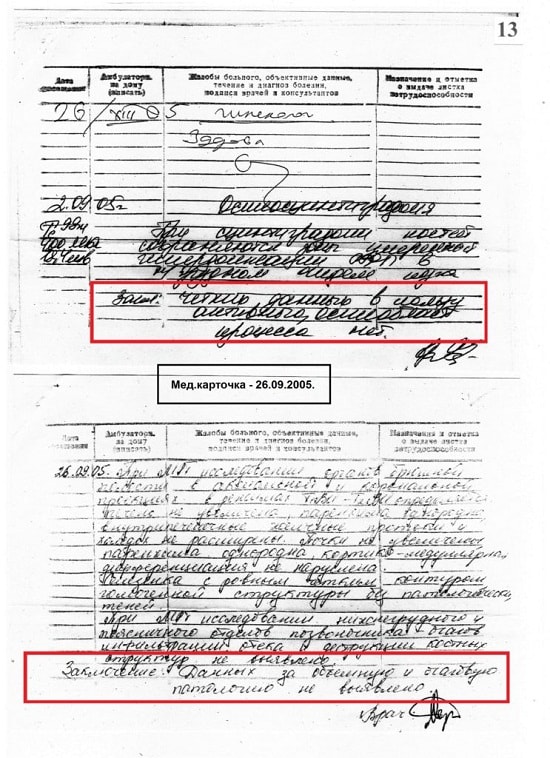 13
Дата
Амбулаторн. на дому (вписать)
Жалобы больного, объективные данные, течение и диагноз болезни, подписи врачей и консультантов
Назначения и отметка о выдаче листка нетрудоспособности
26
гинеколог
Здорова
2.09.05г Остеосцинтиграфия
При сцинтиграфии костей
Закл: четких данных в пользу
активного
процесса нет.
Мед.карточка - 26.09.2005.
Амбулаторн. на дому (вписать)
Жалобы больного, объективные данные, течение и диагноз болезни, подписи врачей и консультантов
Назначения и отметка о выдаче листка нетрудоспособности
26.09.05. При МРТ исследовании органов брюшной
полости в аксиальной и корональной
проекциях в режимах
печень не увеличена, паренхима однородна
внутрипеченочные желчные протоки и
холедох не расширены. Почки не увеличены
паренхима однородна, кортико-медуллярная
дифференциация не нарушена
Селезенка с ровным четким контуром
гомогенной структуры без патологических
теней
При МРТ исследовании нижнегрудного и
поясничного отделов позвоночника очагов
инфильтрации отека и деструкции костных
структур не выявлено.
Заключение: Данных за объемную и очаговую
патологию не выявлено.
Врач